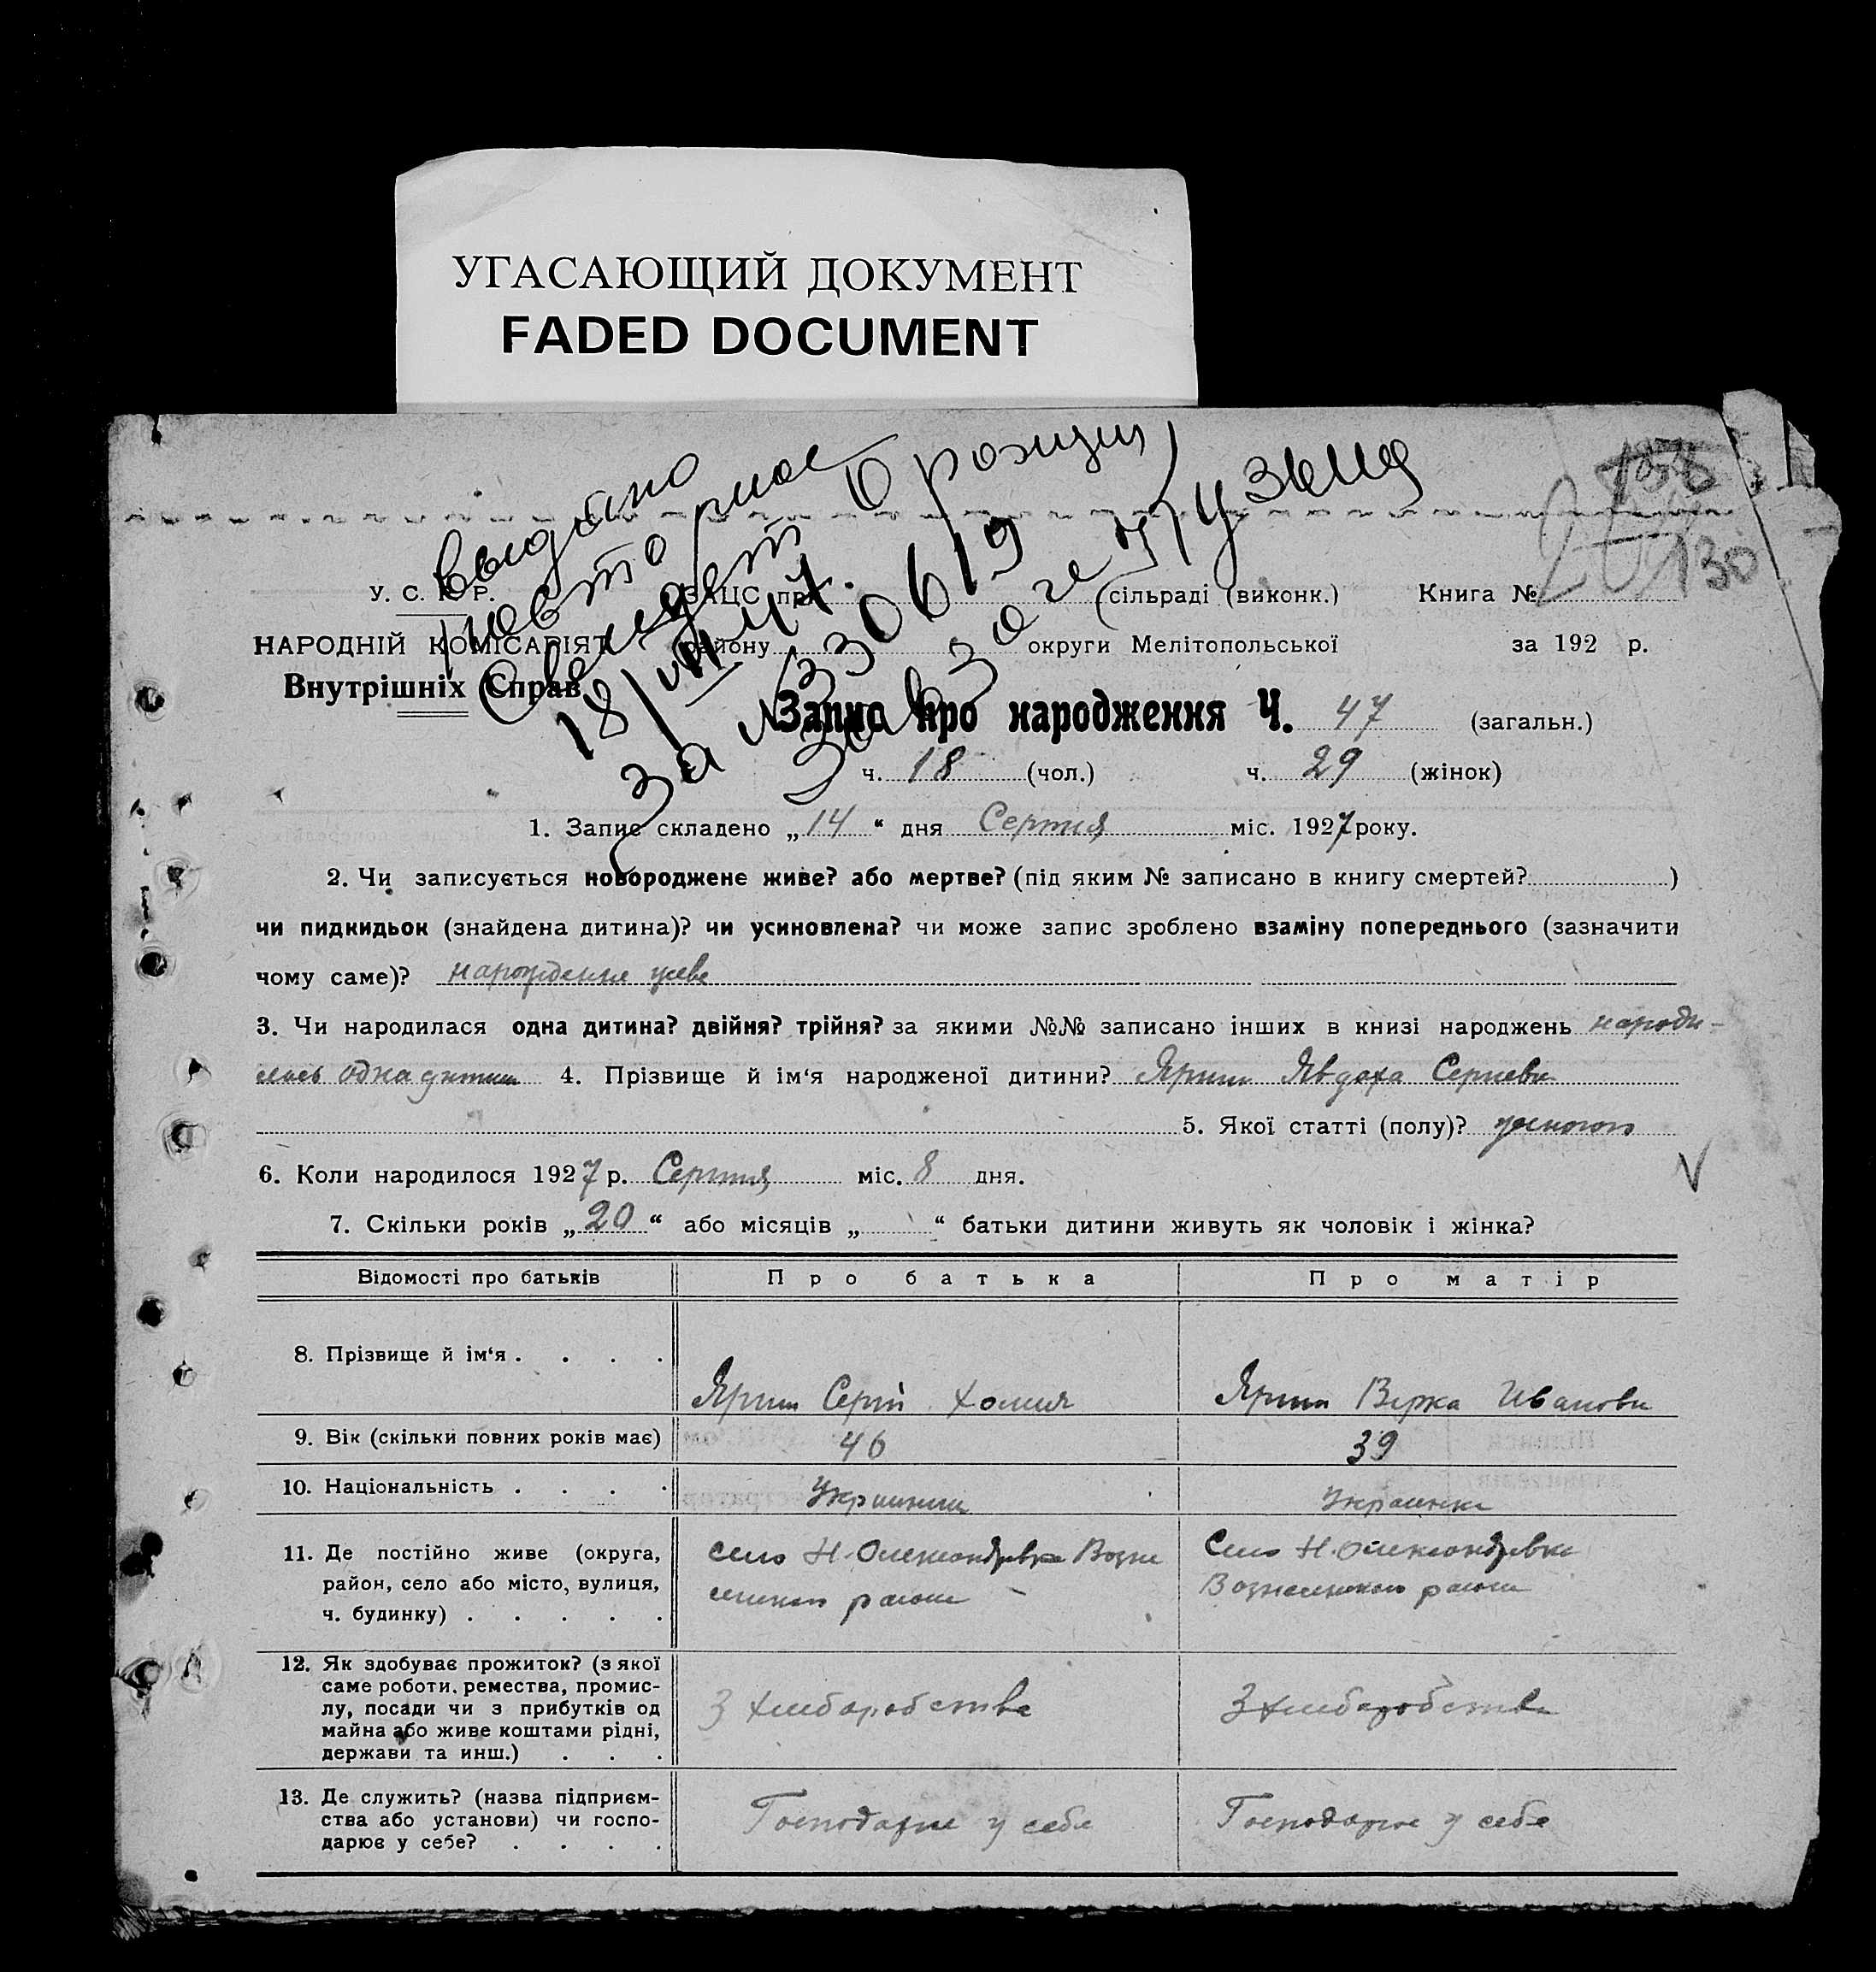 УГАСАЮЩИЙ ДОКУМЕНТ
FADED DOCUMENT
выдано
повторное
Свидет о рожден
18/VIII 47.
за № 330619
138
130
У. С. Р. Р.
ЗАЦС при (сільраді (виконк.) Книга №
НАРОДНІЙ КОМІСАРІЯТ району округи Мелітопольської за 192 р.
Внутрішніх Справ
Запис про народження Ч. 47 (загальн.)
ч. 18 (чол.) ч. 29 (жінок)
1. Запис складено „14“ дня Серпня міс. 1927 року.
2. Чи записується новороджене живе? або мертве? (під яким № записано в книгу смертей? )
чи пидкидьок (знайдена дитина)? чи усиновлена? чи може запис зроблено взаміну попереднього (зазначити
чому саме)? народження живе
3. Чи народилася одна дитина? двійня? трійня? за якими №№ записано інших в книзі народжень народи-
лась одна дитина 4. Прізвище й ім‘я народженої дитини? Явдоха Сергиева
5. Якої статті (полу)? жиночого
6. Коли народилося 1927 р. Серпня міс. 8 дня.
7. Скільки років „20“ або місяців „ “ батьки дитини живуть як чоловік і жінка?
Відомості про батьків Про батька Про матір
8. Прізвище й ім‘я . . . . Сергій Хомич Вірка Иванов
9. Вік (скільки повних років має) 46 39
10. Національність . . . . Украинец Украинка
11. Де постійно живе (округа,
район, село або місто, вулиця,
ч. будинку) . . . . .
село Н. Олександрвка Возне
сенського району
Село Н. Олександрвка
Вознесенського району
12. Як здобуває прожиток? (з якої
саме роботи, ремества, промис-
лу, посади чи з прибутків од
майна або живе коштами рідні,
держави та инш.) . . .
З хлиборобства З хлиборобства
13. Де служить? (назва підприєм-
ства або установи) чи госпо-
дарює у себе? . . . .
Господарює у себе Господарює у себе